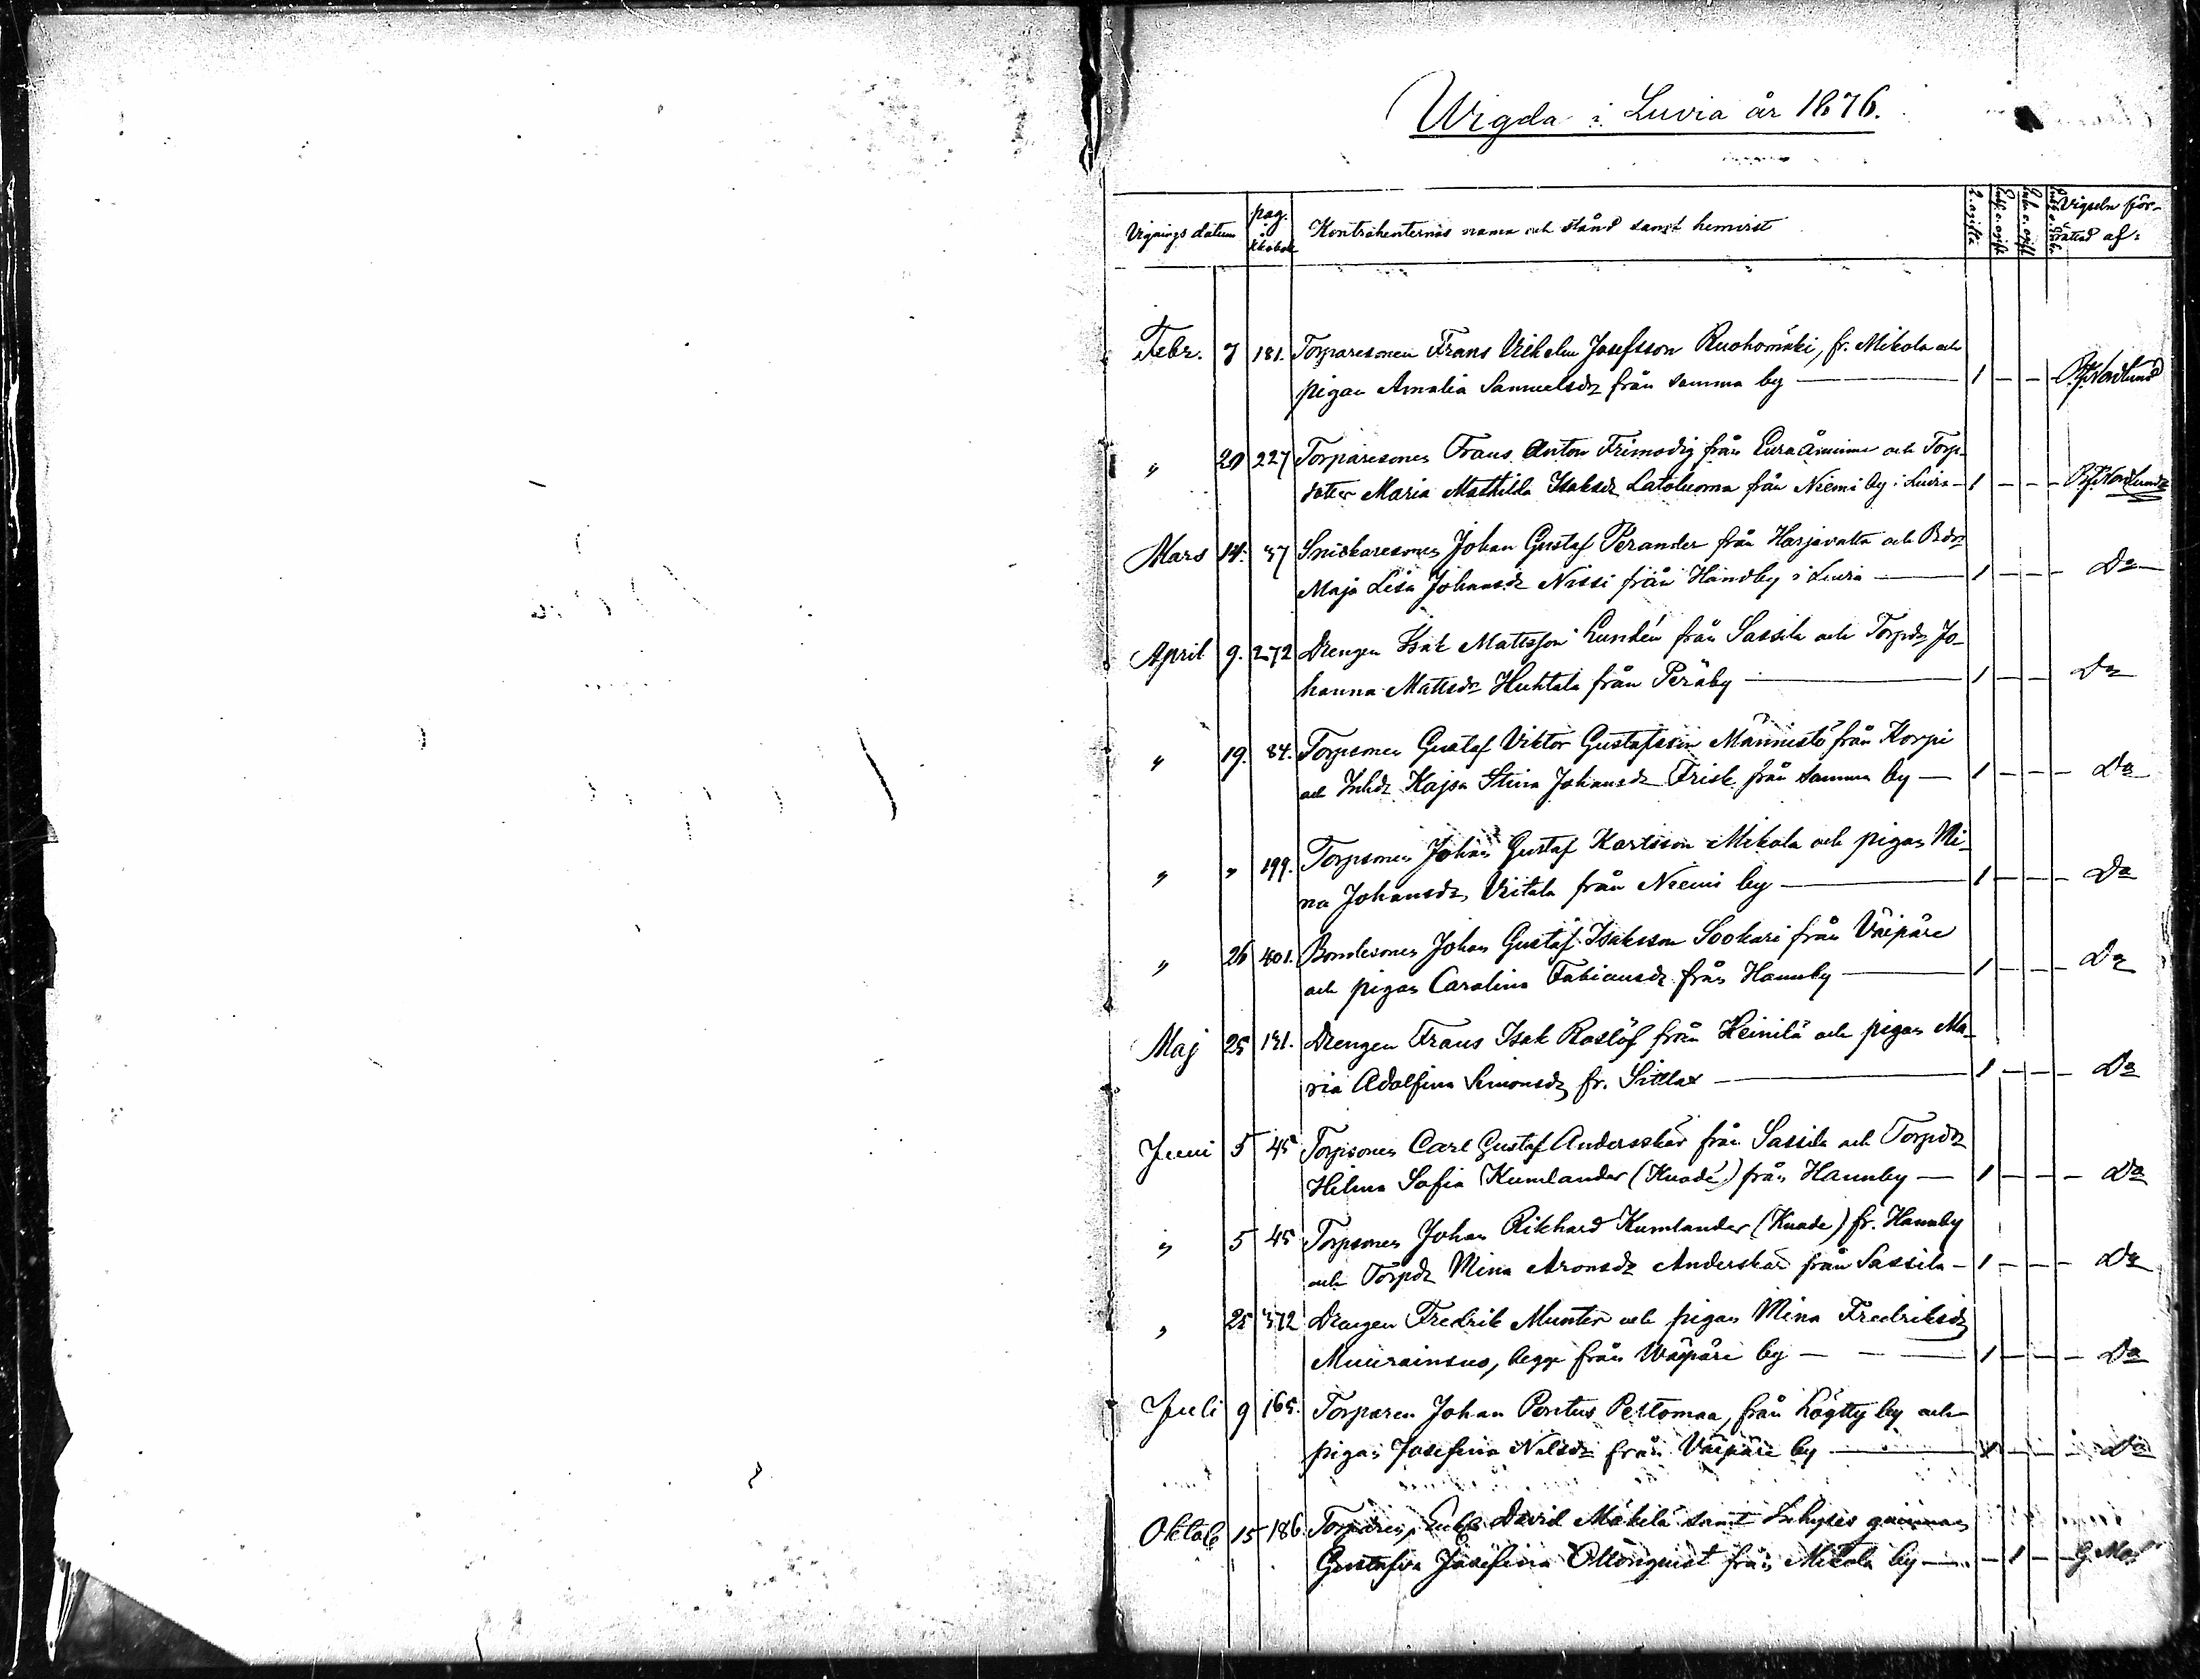 Wigda i Luvia år 1876.
Vignings datum pag. Kontrahenternas namn och stånd samt hemvist Vigseln för-
rättad af:
Febr. 7 181. Torparesonen Frans Vilhelm Josefsson Ruohomäki, fr. Mikola och
pigan Amalia Samuelsdr från samma by — 1 — — — Nordlund
" 20 227 Torparesonen Frans Anton Frimodig från Euraåminne och Torp-
dotter Maria Mathilda Isaksdr Latoluoma från Niemi by i Luvia — 1 — — — Nordlund
Mars 14. 37 Snickaresonen Johan Gustaf Perander från Harjavalta och Bdr
Maja Lisa Johansdr Nissi från Hannby i Luvia — 1 — — — Do
April 9. 272 Drengen Isak Mattsson Lundén från Sassila och Torpdr Jo-
hanna Mattsdr Huhtala från Peräby — 1 — — Do
" 19. 84. Torpsonen Gustaf Viktor Gustafsson Männistö från Korpi
och Inhdr Kajsa Stina Johansdr Frisk från samma by — 1 — — — Do
" " 199. Torpsonen Johan Gustaf Karlsson Mikola och pigan Mi-
na Johansdr Viitala från Niemi by — 1 — — — Do
" 26 401. Bondesonen Johan Gustaf Isaksson Sookari från Väipäre
och pigan Carolina Fabiansdr från Hannby — 1 — — — Do
Maj 25 131. Drengen Frans Isak Roslöf från Heinilä och pigan Ma-
ria Adolfina Simonsdr fr. Sittlax — 1 — — — Do
Juni 5 45 Torpsonen Carl Gustaf Anderskär från Sassila och Torpdr
Hilma Sofia Kumlander (Knade) från Hannby — 1 — — — Do
" 5 45 Torpsonen Johan Rikhard Kumlander (Knade) fr. Hannby
och Torpdr Mina Aronsdr Anderskär från Sassila — 1 — — — Do
" 25 372 Drengen Fredrik Munter och pigan Mina Fredriksdr
Muurainsuo, begge från Wäipäre by — 1 — — — Do
Juli 9 165. Torparen Johan Pontus Peltomaa, från Lögtty by och
pigan Josefina Nilsdr från Väipäre by — — — — Do
Oktob 15 186. Torparen, Enkl. David Mäkelä samt Inhyses qvinnan
Gustafva Josefina Ottonquist från Mikola by — — 1 — —